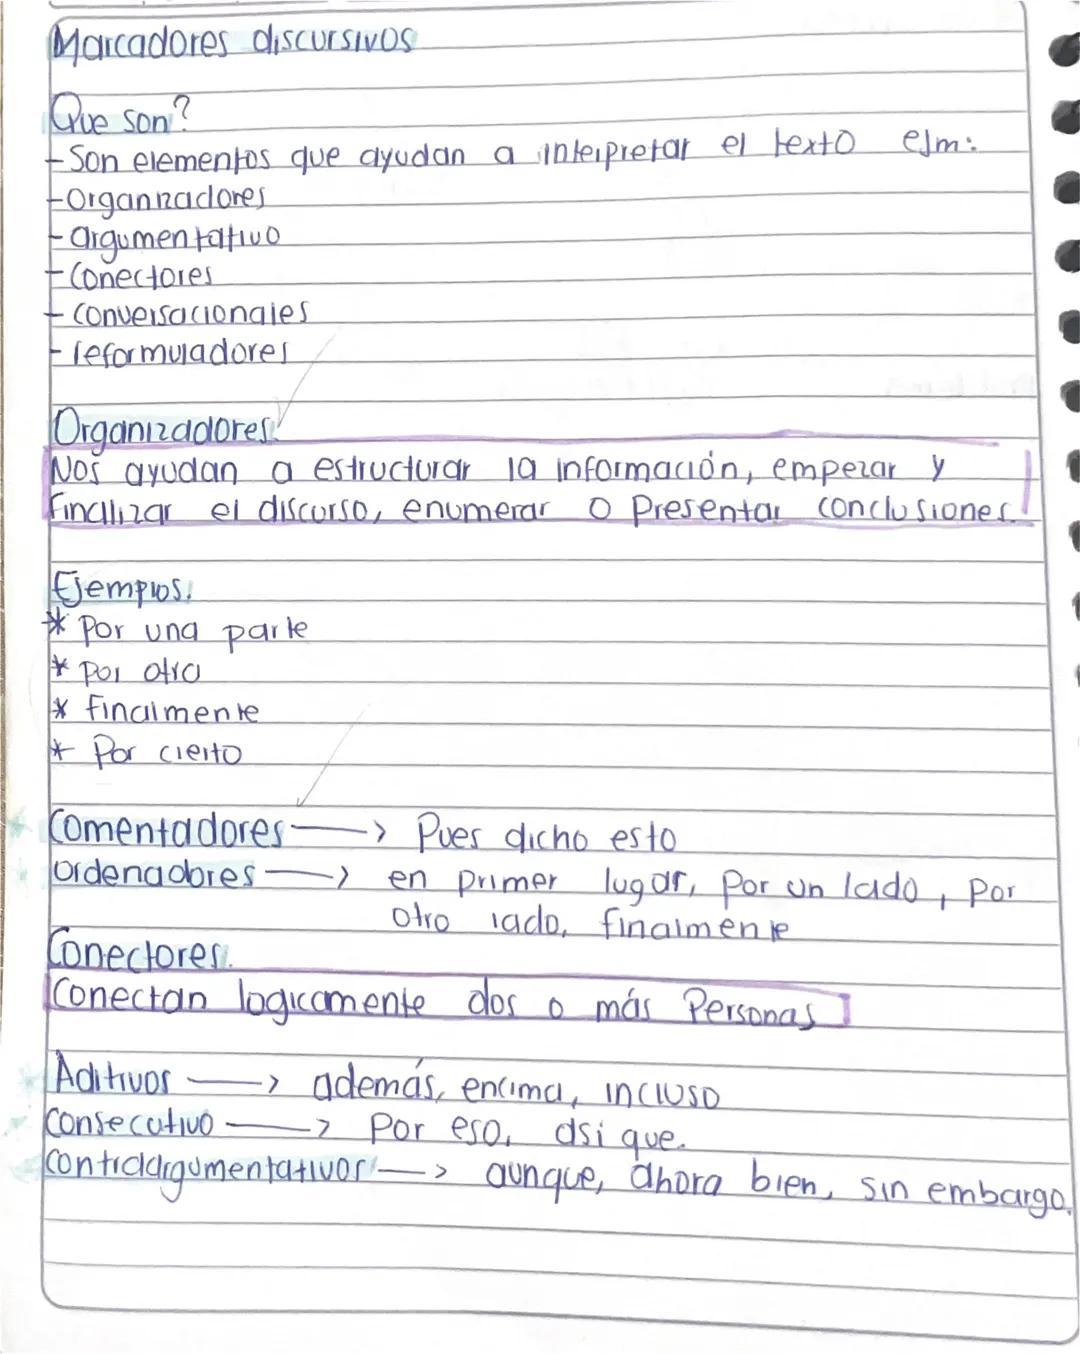 Marcadores discursivos
Que son?
-Son elementos que ayudan a interpretar el texto ejm:
-Organizadores
-argumentativo
-Conectores
-conversacionales
-reformuladores
Organizadores
Nos ayudan a estructurar la información, empezar y
finalizar el discurso, enumerar o presentar conclusiones.
Ejemplos.
* Por una parte
* por otra
* finalmente
* Por cierto
Comentadores —> Pues dicho esto
Ordenadores —> en primer lugar, Por un lado, Por
otro lado, finalmente
Conectores.
Conectan logicamente dos o más Personas
Aditivos —> además, encima, incluso
Consecutivo —> Por eso, asi que.
Contraargumentativos —> aunque, ahora bien, sin embargo.